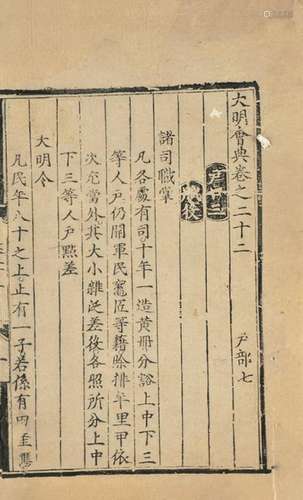 大明會典卷之二十二 戶部七
戶口三
役
諸司職掌
凡各處有司十年一造黃冊分豁上中下三
等人戶仍開軍民竈匠等籍除排年里甲依
次充當外其大小雜泛差役各照所分上中
下三等人戶點差
大明令
凡民年八十之上止有一子若係有田產應